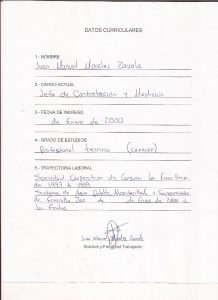 DATOS CURRICULARES
1.- NOMBRE
Juan Manuel Morales Zavala
2.- CARGO ACTUAL
Jefe de Contratacion y Medicion
3.- FECHA DE INGRESO
de Enero de 2000
4.- GRADO DE ESTUDIOS
Profesional Tecnico (Conalep)
5.- TRAYECTORIA LABORAL
Sociedad Cooperativa de Consumo La
de 1997 a 1999
Sistema de Agua Potable, Alcantarillado y Saneamiento
de de Enero de 2000 a
la fecha
Juan Manuel Morales Zavala
Nombre y Firma del Trabajador